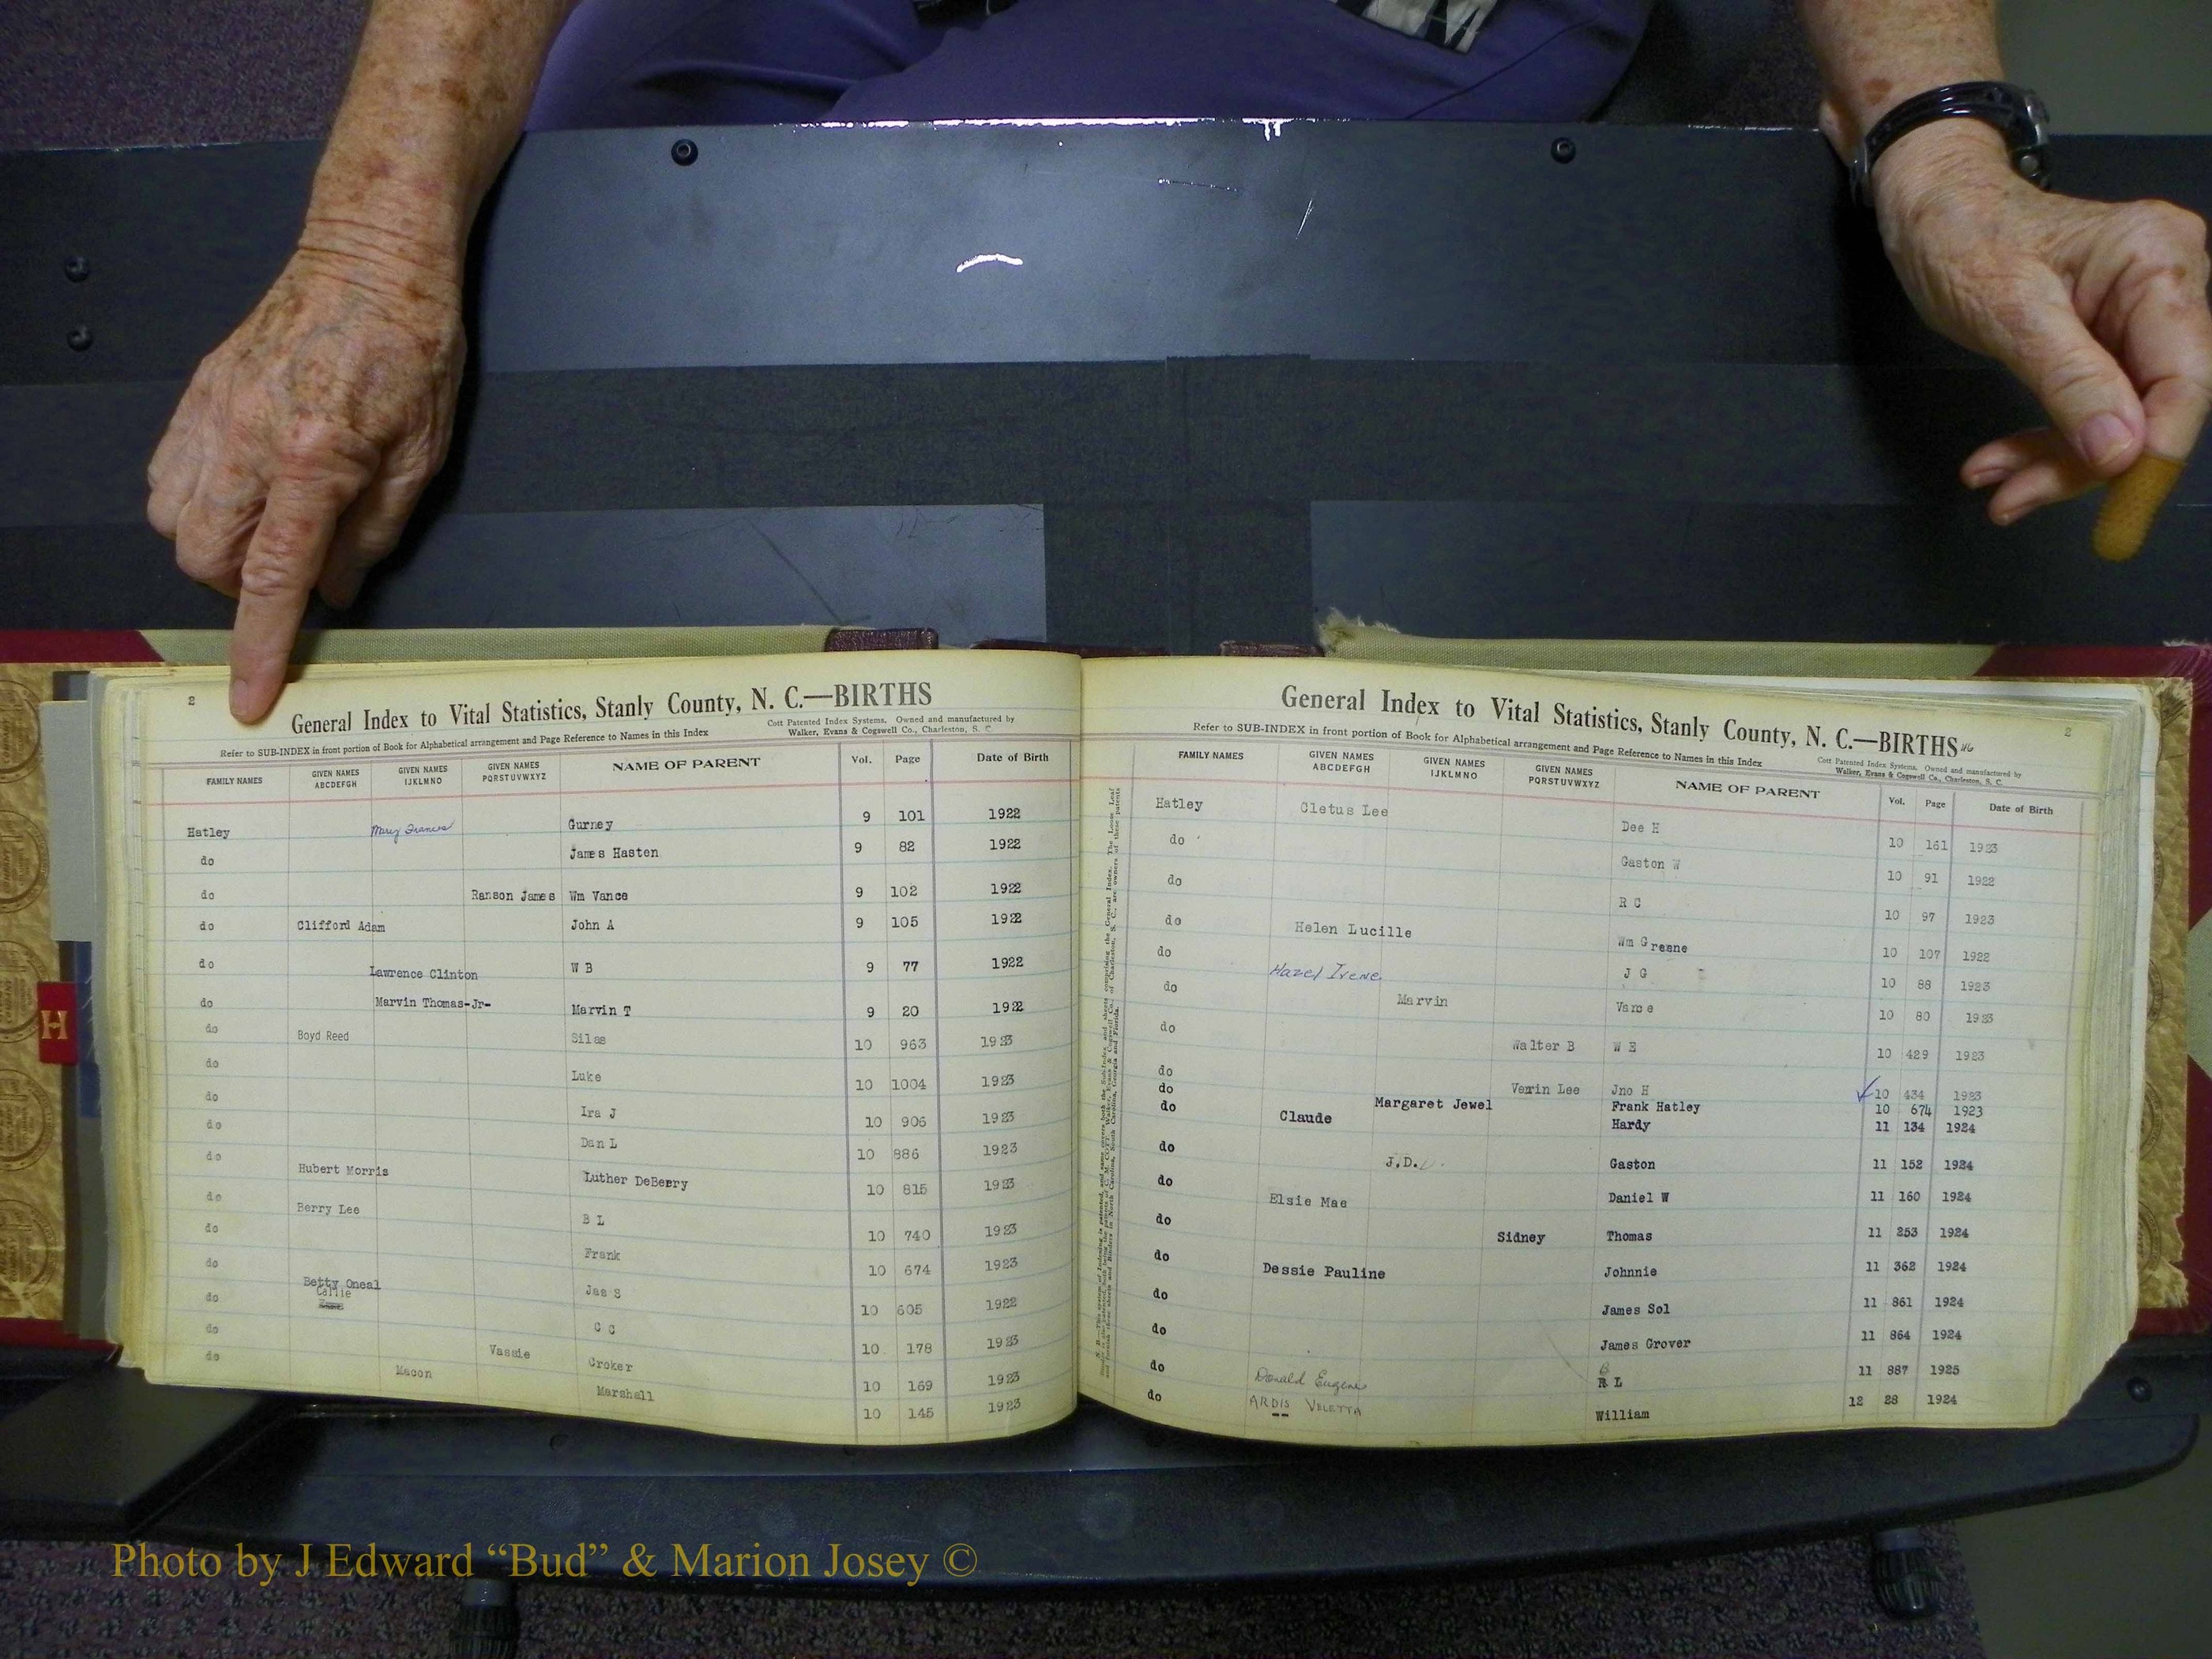 2
General Index to Vital Statistics, Stanly County, N. C.—BIRTHS
Refer to SUB-INDEX in front portion of Book for Alphabetical arrangement and Page Reference to Names in this Index
Cott Patented Index Systems. Owned and manufactured by
Walker, Evans & Cogswell Co., Charleston, S. C.
FAMILY NAMES GIVEN NAMES ABCDEFGH GIVEN NAMES IJKLMNO GIVEN NAMES PQRSTUVWXYZ NAME OF PARENT Vol. Page Date of Birth
Hatley Mary Frances Gurney 9 101 1922
do James Hasten 9 82 1922
do Ranson James Wm Vance 9 102 1922
do Clifford Adam John A 9 105 1922
do Lawrence Clinton W B 9 77 1922
do Marvin Thomas-Jr- Marvin T 9 20 1922
do Boyd Reed Silas 10 963 1923
do Luke 10 1004 1923
do Ira J 10 906 1923
do Dan L 10 886 1923
do Hubert Morris Luther DeBerry 10 815 1923
do Berry Lee B L 10 740 1923
do Frank 10 674 1923
do Betty Oneal Jas S 10 605 1922
do Callie C C 10 178 1923
do Vassie Croker 10 169 1923
do Macon Marshall 10 145 1923
H
2
General Index to Vital Statistics, Stanly County, N. C.—BIRTHS
Refer to SUB-INDEX in front portion of Book for Alphabetical arrangement and Page Reference to Names in this Index
Cott Patented Index Systems. Owned and manufactured by
Walker, Evans & Cogswell Co., Charleston, S. C.
FAMILY NAMES GIVEN NAMES ABCDEFGH GIVEN NAMES IJKLMNO GIVEN NAMES PQRSTUVWXYZ NAME OF PARENT Vol. Page Date of Birth
Hatley Cletus Lee Dee H 10 161 1923
do Gaston W 10 91 1922
do R C 10 97 1923
do Helen Lucille Wm Greene 10 107 1922
do Hazel Irene J G 10 88 1923
do Marvin Vance 10 80 1923
do Walter B W E 10 429 1923
do Verrin Lee Jno H 10 434 1923
do Margaret Jewel Frank Hatley 10 674 1923
do Claude Hardy 11 134 1924
do J.D. Gaston 11 152 1924
do Elsie Mae Daniel W 11 160 1924
do Sidney Thomas 11 253 1924
do Dessie Pauline Johnnie 11 362 1924
do James Sol 11 861 1924
do James Grover 11 864 1924
do Donald Eugene B L 11 887 1925
do ARDIS VELETTA William 12 28 1924
Photo by J Edward “Bud” & Marion Josey ©